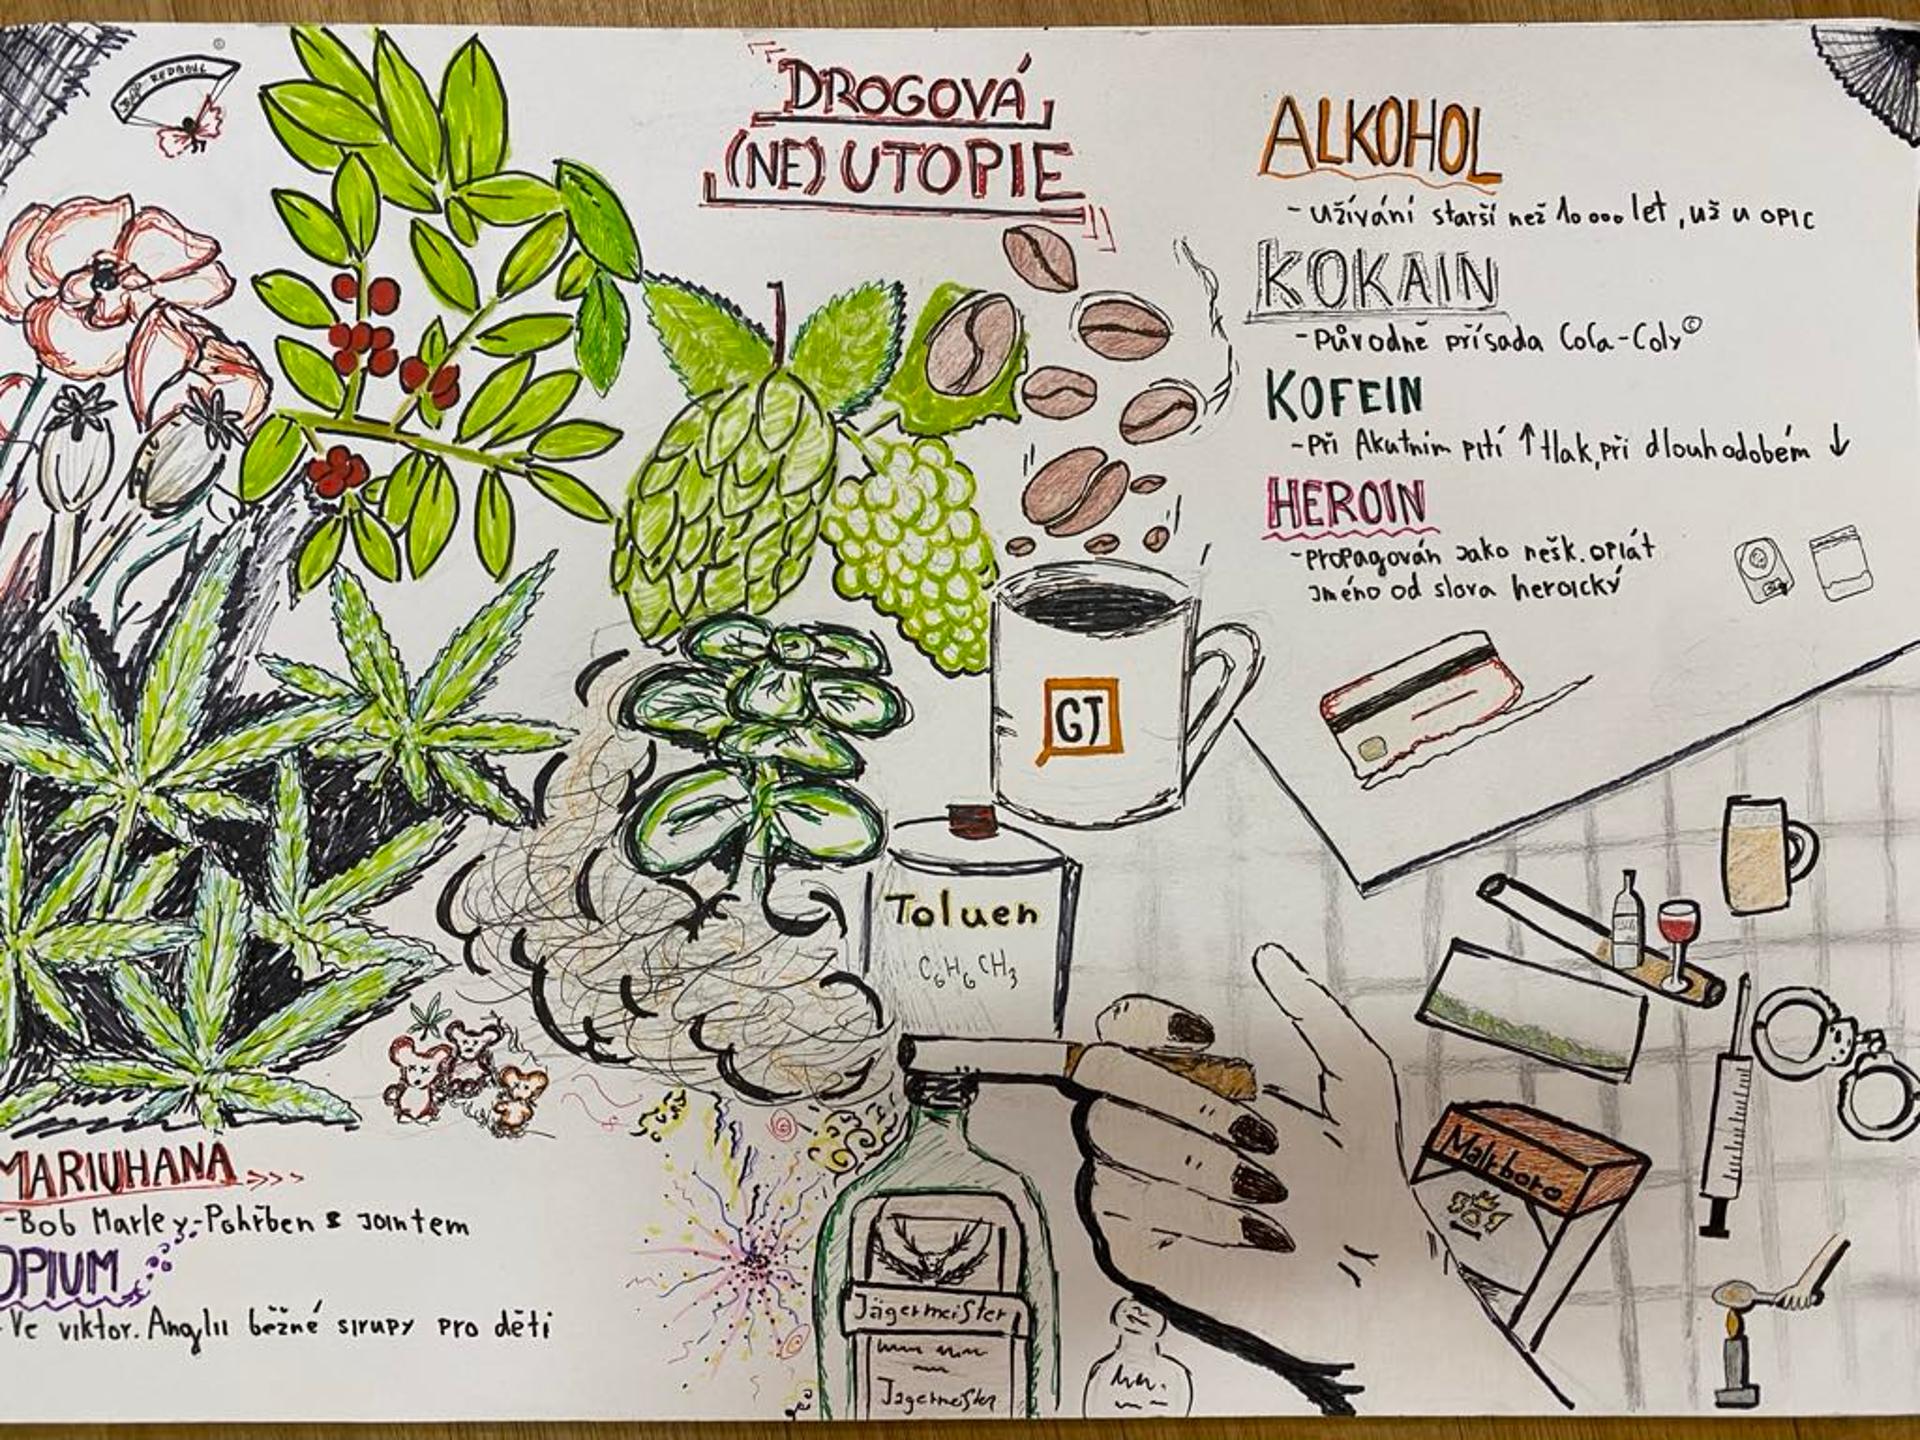 DROGOVÁ
(NE) UTOPIE
ALKOHOL
- užívání starší než 10 000 let, už u opic
KOKAIN
- Původně přísada Coca-Coly ©
KOFEIN
- Při Akutním pití ↑ tlak, při dlouhodobém ↓
HEROIN
- Propagován jako nešk. opiát
Jméno od slova heroický
GJ
Toluen
C6H6CH3
Malrboro
Jägermeister
Jagermeister
MARIUHANA >>>
- Bob Marley - Pohřben s jointem
OPIUM
- Ve viktor. Anglii běžné sirupy pro děti